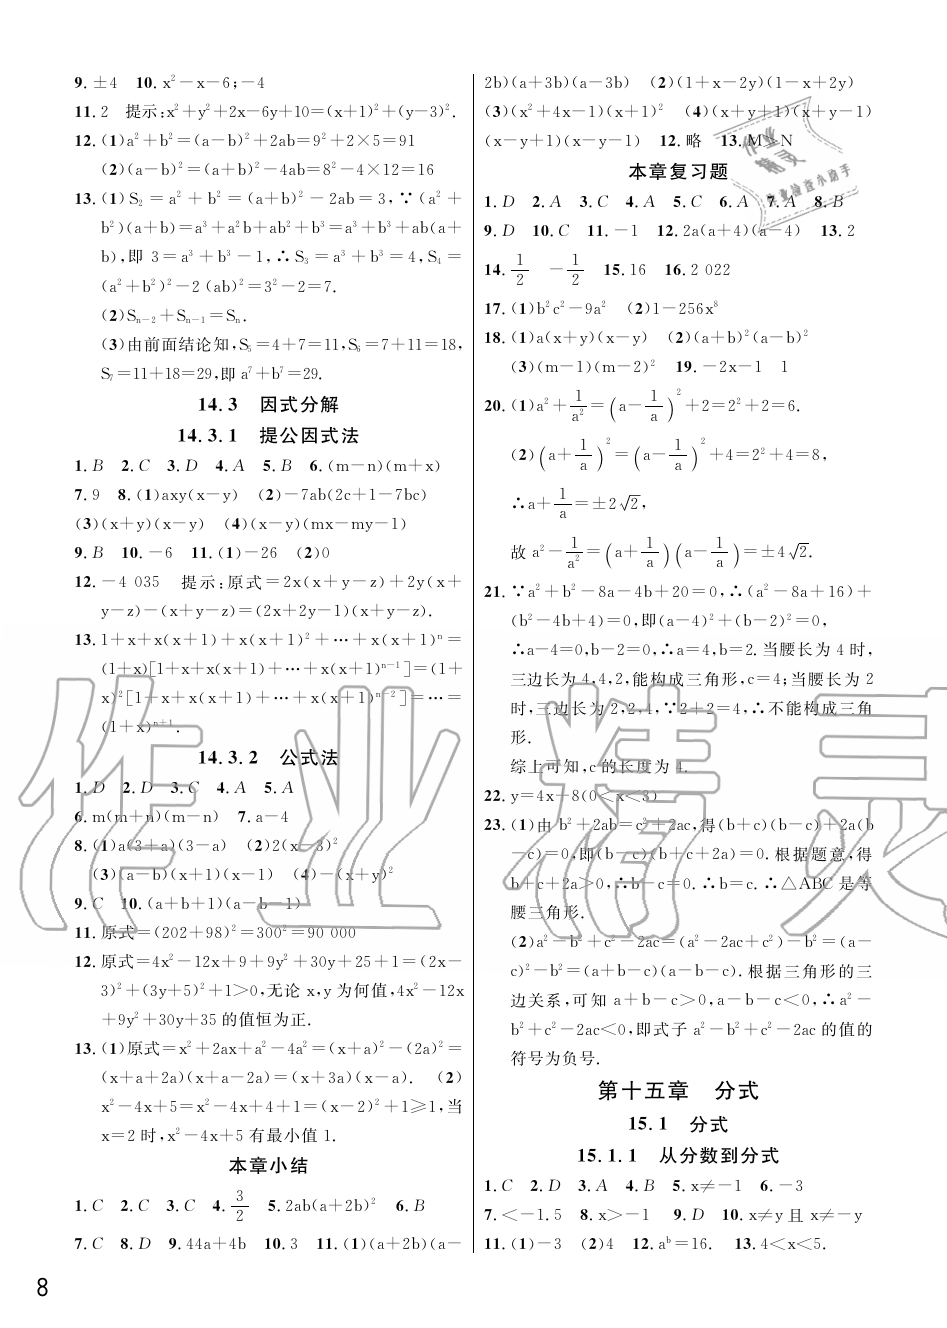 9. ±4 10. x²-x-6;-4
11. 2 提示:x²+y²+2x-6y+10=(x+1)²+(y-3)².
12. (1)a²+b²=(a-b)²+2ab=9²+2×5=91
(2)(a-b)²=(a+b)²-4ab=8²-4×12=16
13. (1)S₂=a²+b²=(a+b)²-2ab=3,∵(a²+
b²)(a+b)=a³+a²b+ab²+b³=a³+b³+ab(a+
b),即 3=a³+b³-1,∴S₃=a³+b³=4,S₄=
(a²+b²)²-2(ab)²=3²-2=7.
(2)Sₙ₋₂+Sₙ₋₁=Sₙ.
(3)由前面结论知,S₅=4+7=11,S₆=7+11=18,
S₇=11+18=29,即 a⁷+b⁷=29.
14.3 因式分解
14.3.1 提公因式法
1. B 2. C 3. D 4. A 5. B 6. (m-n)(m+x)
7. 9 8. (1)axy(x-y) (2)-7ab(2c+1-7bc)
(3)(x+y)(x-y) (4)(x-y)(mx-my-1)
9. B 10. -6 11. (1)-26 (2)0
12. -4 035 提示:原式=2x(x+y-z)+2y(x+
y-z)-(x+y-z)=(2x+2y-1)(x+y-z).
13. 1+x+x(x+1)+x(x+1)²+…+x(x+1)ⁿ=
(1+x)[1+x+x(x+1)+…+x(x+1)ⁿ⁻¹]=(1+
x)²[1+x+x(x+1)+…+x(x+1)ⁿ⁻²]=…=
(1+x)ⁿ⁺¹.
14.3.2 公式法
1. D 2. D 3. C 4. A 5. A
6. m(m+n)(m-n) 7. a-4
8. (1)a(3+a)(3-a) (2)2(x-3)²
(3)(a-b)(x+1)(x-1) (4)-(x+y)²
9. C 10. (a+b+1)(a-b-1)
11. 原式=(202+98)²=300²=90 000
12. 原式=4x²-12x+9+9y²+30y+25+1=(2x-
3)²+(3y+5)²+1>0,无论 x,y 为何值,4x²-12x
+9y²+30y+35 的值恒为正.
13. (1)原式=x²+2ax+a²-4a²=(x+a)²-(2a)²=
(x+a+2a)(x+a-2a)=(x+3a)(x-a). (2)
x²-4x+5=x²-4x+4+1=(x-2)²+1≥1,当
x=2 时,x²-4x+5 有最小值 1.
本章小结
1. C 2. C 3. C 4. 3/2 5. 2ab(a+2b)² 6. B
7. C 8. D 9. 44a+4b 10. 3 11. (1)(a+2b)(a-
2b)(a+3b)(a-3b) (2)(1+x-2y)(1-x+2y)
(3)(x²+4x-1)(x+1)² (4)(x+y+1)(x+y-1)
(x-y+1)(x-y-1) 12. 略 13. M>N
本章复习题
1. D 2. A 3. C 4. A 5. C 6. A 7. A 8. B
9. D 10. C 11. -1 12. 2a(a+4)(a-4) 13. 2
14. 1/2 -1/2 15. 16 16. 2 022
17. (1)b²c²-9a² (2)1-256x⁸
18. (1)a(x+y)(x-y) (2)(a+b)²(a-b)²
(3)(m-1)(m-2)² 19. -2x-1 1
20. (1)a²+1/a²=(a-1/a)²+2=2²+2=6.
(2)(a+1/a)²=(a-1/a)²+4=2²+4=8,
∴a+1/a=±2√2,
故 a²-1/a²=(a+1/a)(a-1/a)=±4√2.
21. ∵a²+b²-8a-4b+20=0,∴(a²-8a+16)+
(b²-4b+4)=0,即(a-4)²+(b-2)²=0,
∴a-4=0,b-2=0,∴a=4,b=2. 当腰长为 4 时,
三边长为 4,4,2,能构成三角形,c=4;当腰长为 2
时,三边长为 2,2,4,∵2+2=4,∴不能构成三角
形.
综上可知,c 的长度为 4.
22. y=4x-8(0<x<3)
23. (1)由 b²+2ab=c²+2ac,得(b+c)(b-c)+2a(b
-c)=0,即(b-c)(b+c+2a)=0. 根据题意,得
b+c+2a>0,∴b-c=0. ∴b=c. ∴△ABC 是等
腰三角形.
(2)a²-b²+c²-2ac=(a²-2ac+c²)-b²=(a-
c)²-b²=(a+b-c)(a-b-c). 根据三角形的三
边关系,可知 a+b-c>0,a-b-c<0,∴a²-
b²+c²-2ac<0,即式子 a²-b²+c²-2ac 的值的
符号为负号.
第十五章 分式
15.1 分式
15.1.1 从分数到分式
1. C 2. D 3. A 4. B 5. x≠-1 6. -3
7. <-1.5 8. x>-1 9. D 10. x≠y 且 x≠-y
11. (1)-3 (2)4 12. aᵇ=16. 13. 4<x<5.
8
作业精灵
作业精灵
作业检查小助手